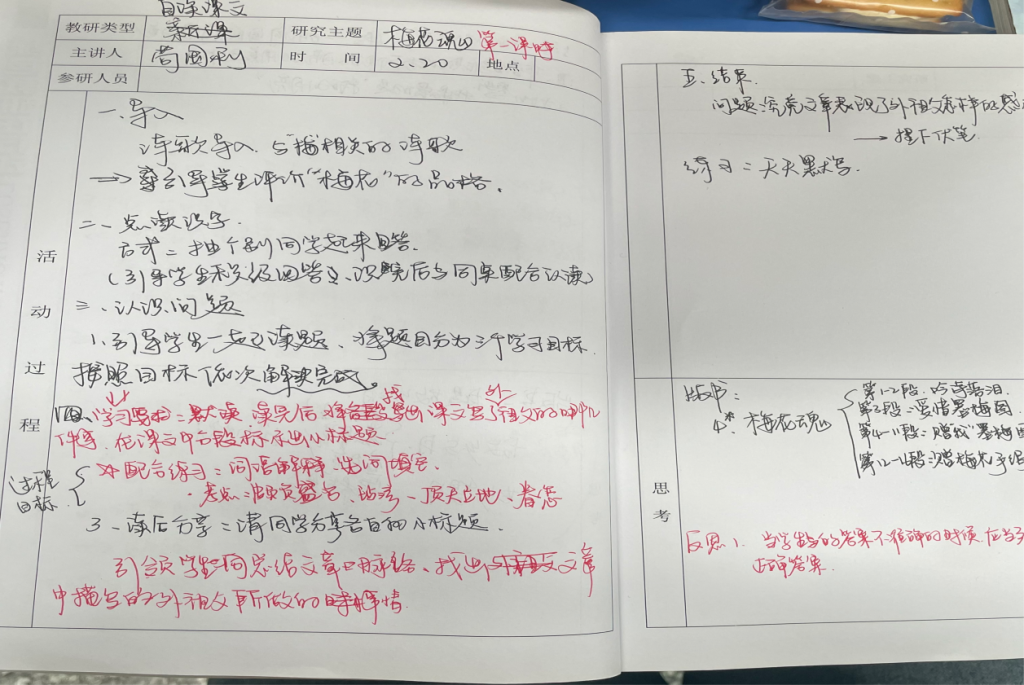 自读课文
教研类型 新课 研究主题 梅花魂 第一课时
主讲人 时间 2.20 地点
参研人员
活动过程
一、导入
诗歌导入 与梅相关的诗歌
→ 引导学生评价“梅花”的品格。
二、点读识字.
方式：抽个别同学起来回答.
(引导学生积极回答,识完后与同桌配合认读)
三、认识问题
1.引导学生一起读题、将题目分为三个学习目标.
按照目标依次解决完成。
四、学习 ：默读 读完后 找出课文写外祖父的哪几
件事,在课文中 段标 小标题
过程目标
配合练习：词语解释、选词填空.
考点： 顶天立地、眷恋
3、读后分享：请同学分享自己的小标题.
引领学生 总结文章 脉络、找出 文章
中描写的 外祖父所做的 事情
五、结束.
问题:究竟文章表现了外祖父怎样的
→ 埋下伏笔
练习：天天默写.
思考
板书：
4* 梅花魂
第1-2段：吟诗落泪
第3段：爱惜墨梅图
第4-11段：赠我“墨梅图
第12-14段：
反思1、当学生 的答案不准确的时候,应当
答案.